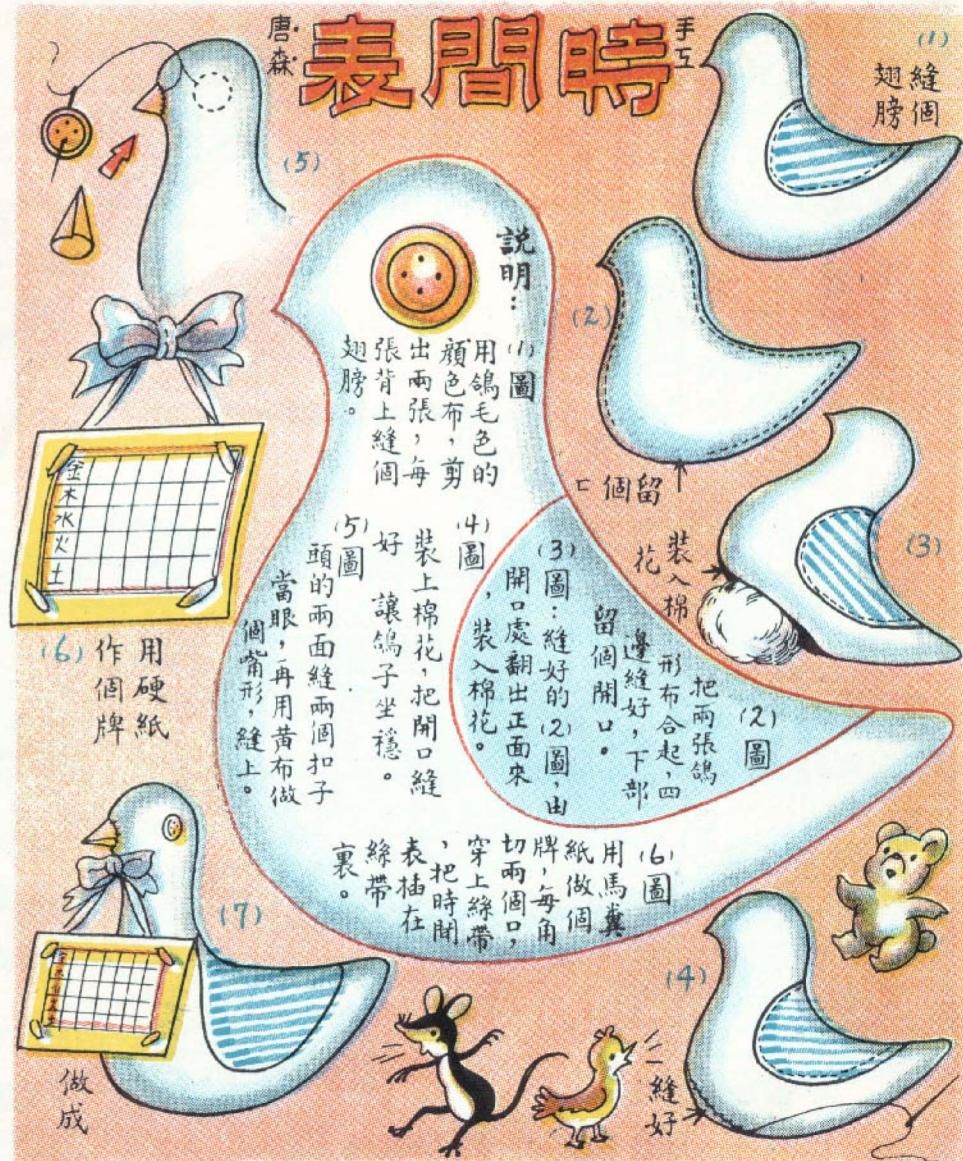 手工
時間表
唐·森·
(1)
縫個
翅膀
(2)
留個口
(3)
裝入棉
花
(4)
縫好
(5)
(6)
用硬紙
作個牌
金
木
水
火
土
(7)
做成
說明：
(1)圖
用鴿毛色的
顏色布，剪
出兩張，每
張背上縫個
翅膀。
(2)圖
把兩張鴿
形布合起，四
邊縫好，下部
留個開口。
(3)圖：縫好的(2)圖，由
開口處翻出正面來
，裝入棉花。
(4)圖
裝上棉花，把開口縫
好 讓鴿子坐穩。
(5)圖
頭的兩面縫兩個扣子
當眼，再用黃布做
個嘴形，縫上。
(6)圖
用馬糞
紙做個
牌，每角
切兩個口，
穿上絲帶
，把時間
表插在
絲帶
裏。